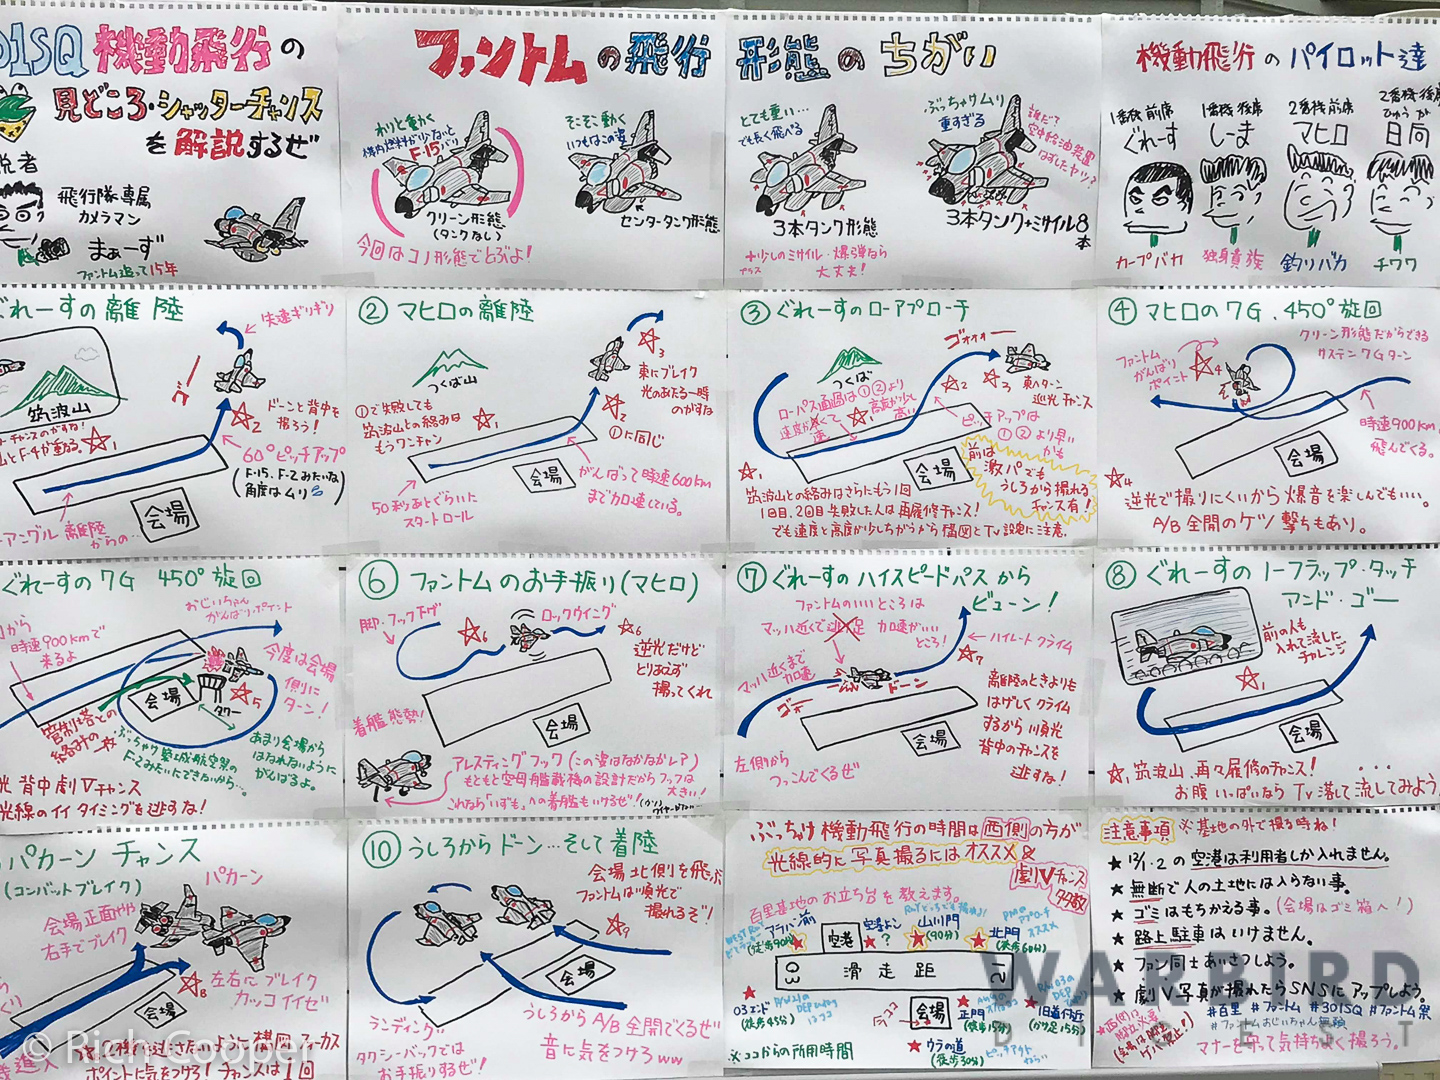 01SQ 機動飛行の
見どころ・シャッターチャンス
を解説するぜ
説者
飛行隊専属
カメラマン
まぁーず
ファントム追って15年
ファントムの飛行形態のちがい
わりと動く
機内燃料が少ないと
F-15バリ
クリーン形態
(タンクなし)
今回はコノ形態でとぶよ!
そこそこ動く
いつもはこの姿
センタータンク形態
とても重い…
でも長く飛べる
3本タンク形態
+少しのミサイル・爆弾なら
プラス
大丈夫!
ぶっちゃけムリ
重すぎる
誰だ?
空中給油装置
はずしたヤツ?
3本タンク+ミサイル8本
機動飛行のパイロット達
1番機前席
ぐれーす
カープバカ
1番機後席
しーま
独身貴族
2番機前席
マヒロ
釣りバカ
2番機後席
ひゅうが
日向
チワワ
ぐれーすの離陸
失速ギリギリ
筑波山
ドーンと背中を
撮ろう!
60°ピッチアップ
(F-15、F-2みたいな
角度はムリ)
会場
アングル離陸
からの…
② マヒロの離陸
つくば山
①で失敗しても
筑波山との絡みは
もうワンチャン
東にブレイク
光のあたる一瞬
のがすな
①に同じ
会場
50秒あとぐらいに
スタートロール
がんばって時速600km
まで加速している。
③ ぐれーすのローアプローチ
ゴォォォー
つくば
ローパス通過は①②より
高度が少し
高い
東へターン
逆光チャンス
ピッチアップは
①②より早い
かも
会場
前は
激パでも
うしろから撮れる
チャンス有!
筑波山との絡みはさらにもう1回
1回目、2回目失敗した人は再履修チャンス!
でも速度と高度が少しちがうから構図とTv設定に注意.
④ マヒロの7G、450°旋回
ファントム
がんばり
ポイント
クリーン形態だからできる
サステン7Gターン
時速900kmで
飛んでくる。
会場
逆光で撮りにくいから爆音を楽しんでもいい。
A/B全開のケツ撃ちもあり。
ぐれーすの7G 450°旋回
おじいちゃん
がんばりポイント
から
時速900kmで
来るよ
今度は会場
側に
ターン!
会場
タワー
管制塔との
絡みの
ぶっちゃけ築城航空祭の
F-2みたいにできないから…。
あまり会場から
はなれないように
がんばるよ。
光 背中劇Vチャンス
光線のイイタイミングを逃すな!
⑥ ファントムのお手振り(マヒロ)
脚・フック下げ
ロックウイング
逆光だけど
とりあえず
撮ってくれ
着艦態勢!
会場
アレスティングフック(この姿はなかなかレア)
もともと空母艦載機の設計だからフックは
大きい!
これなら「いずも」への着艦もいけるぜ!
⑦ ぐれーすのハイスピードパスから
ビューン!
ファントムのいいところは
マッハ近くで
加速がいい
ところ!
ハイレートクライム
マッハ近くまで
加速
ゴー
ドーン
会場
左側から
つっこんでくるぜ
離陸のときよりも
はげしくクライム
するから順光
背中のチャンスを
逃すな!
⑧ ぐれーすのノーフラップ・タッチ
アンド・ゴー
前の人も
入れて流した
チャレンジ
会場
筑波山、再々履修のチャンス! ...
お腹いっぱいなら Tv 落として流してみよう
パカーン チャンス
(コンバットブレイク)
パカーン
会場正面やや
右手でブレイク
左右にブレイク
カッコイイゼ
会場
構図、フォーカス
ポイントに気をつけろ!チャンスは1回
⑩ うしろからドーン…そして着陸
会場 土側を飛ぶ
ファントムは順光で
撮れるぞ!
会場
ランディング
タクシーバックでは
お手振りするぜ!
うしろからA/B全開でくるぜ
音に気をつけろww
ぶっちゃけ機動飛行の時間は西側の方が
光線的に写真撮るにはオススメ
劇Vチャンス
多数
百里基地のお立ち台を教えます。
アラハン前
(徒歩90分)
空港
空港よこ
?
山川門
(90分)
北門
(徒歩60分)
03 滑走距 21
03エンド
(徒歩45分)
ココ
会場
正門
(徒歩15分)
旧道付近
(かけ足15分)
ウラの道
(徒歩30分)
※ココからの所用時間
注意事項 ※基地の外で撮る時ね!
★ 12/1・2の空港は利用者しか入れません。
★ 無断で人の土地には入らない事。
★ ゴミはもちかえる事。(会場はゴミ箱へ!)
★ 路上駐車はいけません。
★ ファン同士あいさつしよう。
★ 劇V写真が撮れたらSNSにアップしよう。
#百里 #ファントム #301SQ #ファントム祭
#ファントムおじいちゃん無頼
マナーを守って気持ちよく撮ろう。
WARBIRD
DIGEST
© Rich Cooper